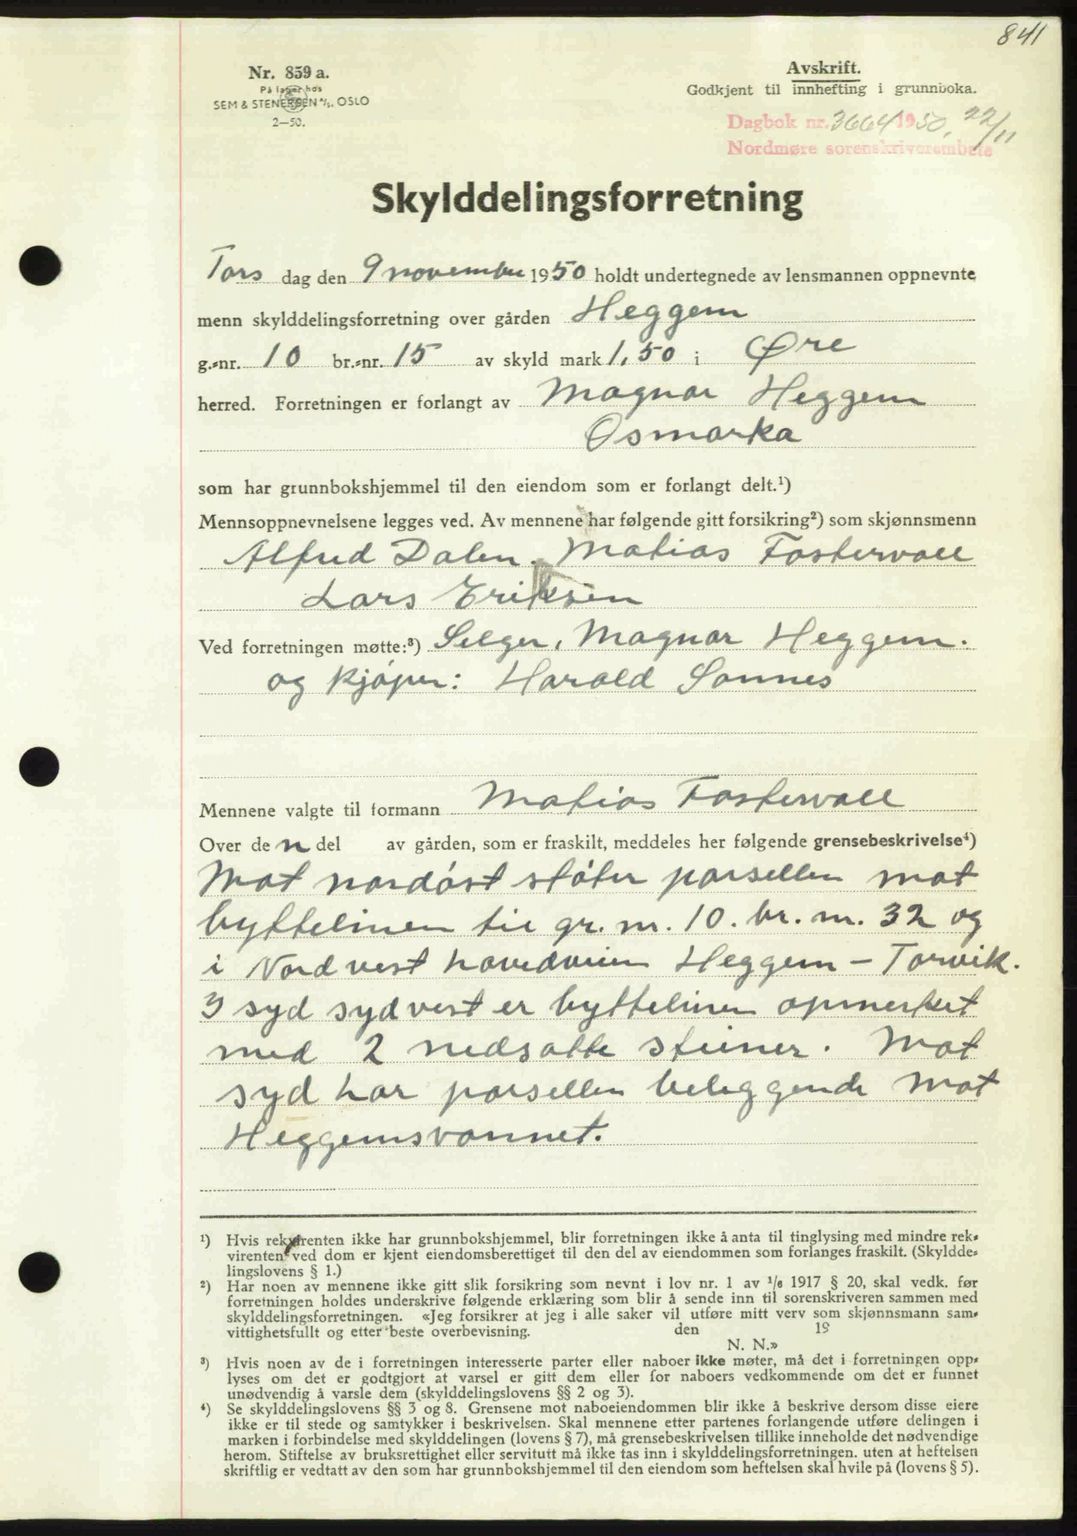 841
Nr. 859 a.
På lager hos
SEM & STENERSEN A/S. OSLO
2—50.
Avskrift.
Godkjent til innhefting i grunnboka.
Dagbok nr. 3664 1950, 22/11
Nordmøre sorenskriverembete
Skylddelingsforretning
Tors dag den 9 november 1950 holdt undertegnede av lensmannen oppnevnte
menn skylddelingsforretning over gården Heggem
g.-nr. 10 br.-nr. 15 av skyld mark 1,50 i Øre
herred. Forretningen er forlangt av Magnar Heggem
Osmarka
som har grunnbokshjemmel til den eiendom som er forlangt delt.¹)
Mennsoppnevnelsene legges ved. Av mennene har følgende gitt forsikring²) som skjønnsmenn
Alfred Dalen. Matias Fostervoll
Lars Eriksen
Ved forretningen møtte:³) Selger, Magnar Heggem.
og kjøper: Harald Sannes
Mennene valgte til formann Matias Fostervoll
Over de n del av gården, som er fraskilt, meddeles her følgende grensebeskrivelse⁴)
Mot nordøst støter parsellen mot
byttelinen til gr. nr. 10. br. nr. 32 og
i Nordvest hovedveien Heggem – Torvik.
I syd sydvest er byttelinen opmerket
med 2 nedsatte steiner. Mot
syd har parsellen beleggende mot
Heggemsvannet.
¹) Hvis rekvirenten ikke har grunnbokshjemmel, blir forretningen ikke å anta til tinglysing med mindre rek-
virenten ved dom er kjent eiendomsberettiget til den del av eiendommen som forlanges fraskilt. (Skyldde-
lingslovens § 1.)
²) Har noen av mennene ikke gitt slik forsikring som nevnt i lov nr. 1 av 1/6 1917 § 20, skal vedk. før
forretningen holdes underskrive følgende erklæring som blir å sende inn til sorenskriveren sammen med
skylddelingsforretningen. «Jeg forsikrer at jeg i alle saker vil utføre mitt verv som skjønnsmann sam-
vittighetsfullt og etter beste overbevisning. den 19
N. N.»
³) Hvis noen av de i forretningen interesserte parter eller naboer ikke møter, må det i forretningen opp-
lyses om det er godtgjort at varsel er gitt dem eller for naboers vedkommende om det er funnet
unødvendig å varsle dem (skylddelingslovens §§ 2 og 3).
⁴) Se skylddelingslovens §§ 3 og 8. Grensene mot naboeiendommen blir ikke å beskrive dersom disse eiere
ikke er til stede og samtykker i beskrivelsen. Skal mennene etter partenes forlangende utføre delingen i
marken i forbindelse med skylddelingen (lovens § 7), må grensebeskrivelsen tillike inneholde det nødvendige
herom. Stiftelse av bruksrettighet eller servitutt må ikke tas inn i skylddelingsforretningen, uten at heftelsen
skriftlig er vedtatt av den som har grunnbokshjemmel til den eiendom som heftelsen skal hvile på (lovens § 5).